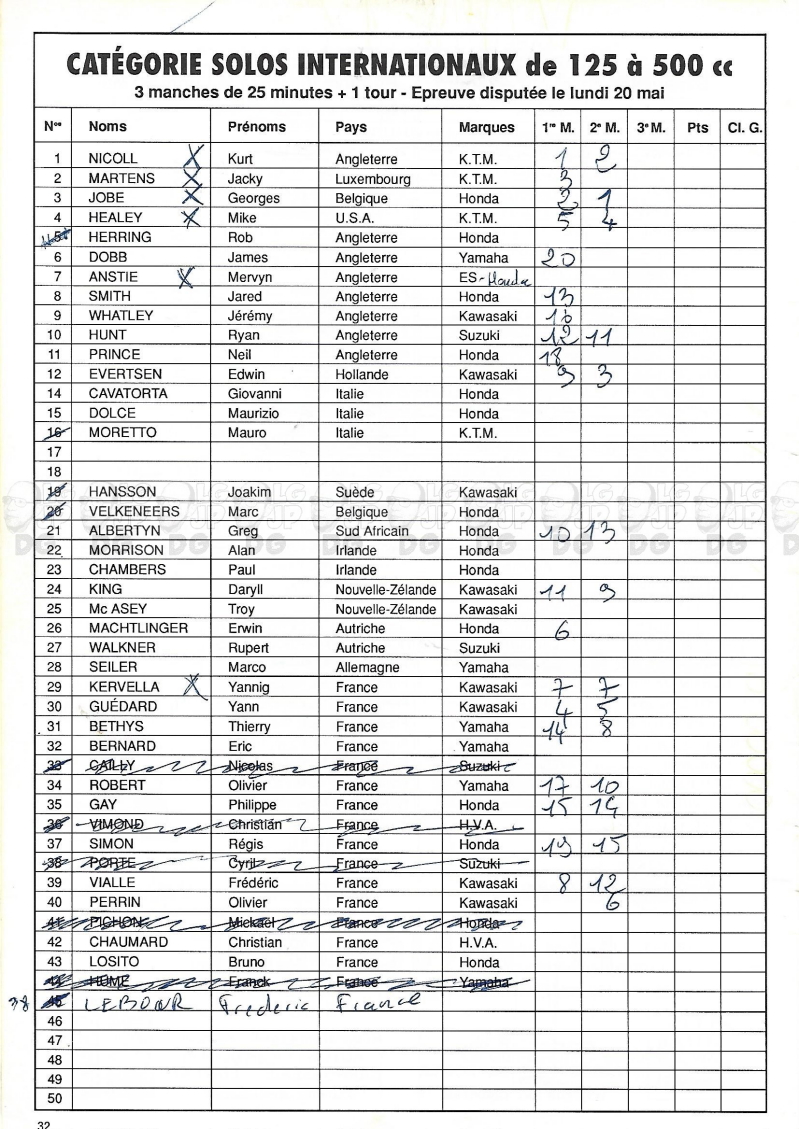 CATÉGORIE SOLOS INTERNATIONAUX de 125 à 500 cc
3 manches de 25 minutes + 1 tour - Epreuve disputée le lundi 20 mai
Nos Noms Prénoms Pays Marques 1re M. 2e M. 3e M. Pts Cl. G.
1 NICOLL X Kurt Angleterre K.T.M. 1 2
2 MARTENS X Jacky Luxembourg K.T.M. 3
3 JOBE X Georges Belgique Honda 2 1
4 HEALEY X Mike U.S.A. K.T.M. 5 4
HERRING Rob Angleterre Honda
6 DOBB James Angleterre Yamaha 20
7 ANSTIE X Mervyn Angleterre ES-Honda
8 SMITH Jared Angleterre Honda 13
9 WHATLEY Jérémy Angleterre Kawasaki 16
10 HUNT Ryan Angleterre Suzuki 12 11
11 PRINCE Neil Angleterre Honda 18
12 EVERTSEN Edwin Hollande Kawasaki 9 3
14 CAVATORTA Giovanni Italie Honda
15 DOLCE Maurizio Italie Honda
16 MORETTO Mauro Italie K.T.M.
17
18
19 HANSSON Joakim Suède Kawasaki
20 VELKENEERS Marc Belgique Honda
21 ALBERTYN Greg Sud Africain Honda 10 13
22 MORRISON Alan Irlande Honda
23 CHAMBERS Paul Irlande Honda
24 KING Daryll Nouvelle-Zélande Kawasaki 11 9
25 Mc ASEY Troy Nouvelle-Zélande Kawasaki
26 MACHTLINGER Erwin Autriche Honda 6
27 WALKNER Rupert Autriche Suzuki
28 SEILER Marco Allemagne Yamaha
29 KERVELLA X Yannig France Kawasaki 7 7
30 GUÉDARD Yann France Kawasaki 4 5
31 BETHYS Thierry France Yamaha 14 8
32 BERNARD Eric France Yamaha
33 CAILLY Nicolas France Suzuki
34 ROBERT Olivier France Yamaha 17 10
35 GAY Philippe France Honda 15 14
36 VIMOND Christian France H.V.A.
37 SIMON Régis France Honda 19 15
38 PORTE Cyril France Suzuki
39 VIALLE Frédéric France Kawasaki 8 12
40 PERRIN Olivier France Kawasaki 6
41 PICHON Mickaël France Honda
42 CHAUMARD Christian France H.V.A.
43 LOSITO Bruno France Honda
44 HUME Franck France Yamaha
38 45 LEBOUR Frederic France
46
47
48
49
50
32
LG JP DG